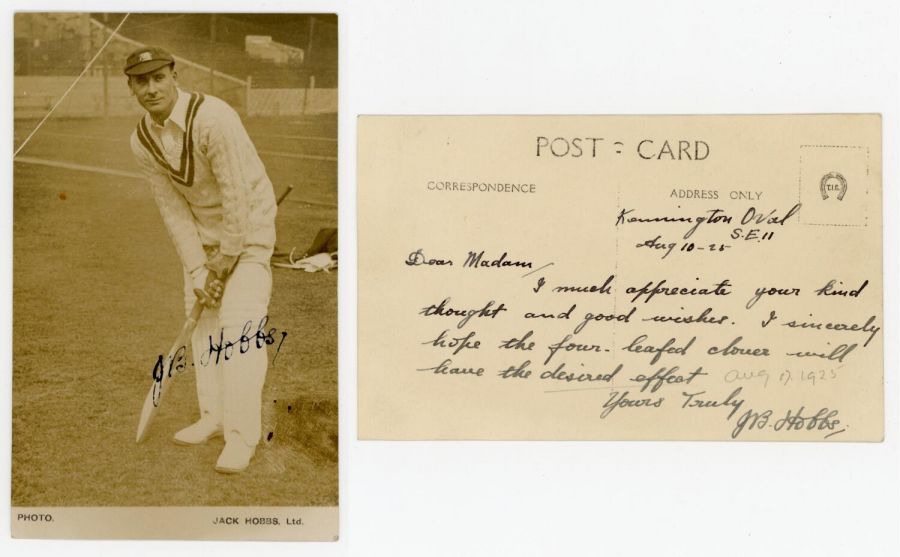 JB. Hobbs,
PHOTO.
JACK HOBBS. Ltd.
POST CARD
CORRESPONDENCE
ADDRESS ONLY
T.I.C.
Kennington Oval
S.E.11
Aug 10-25
Dear Madam,
I much appreciate your kind
thought and good wishes. I sincerely
hope the four-leafed clover will
have the desired effect
Aug 17. 1925
Yours Truly
JB. Hobbs,